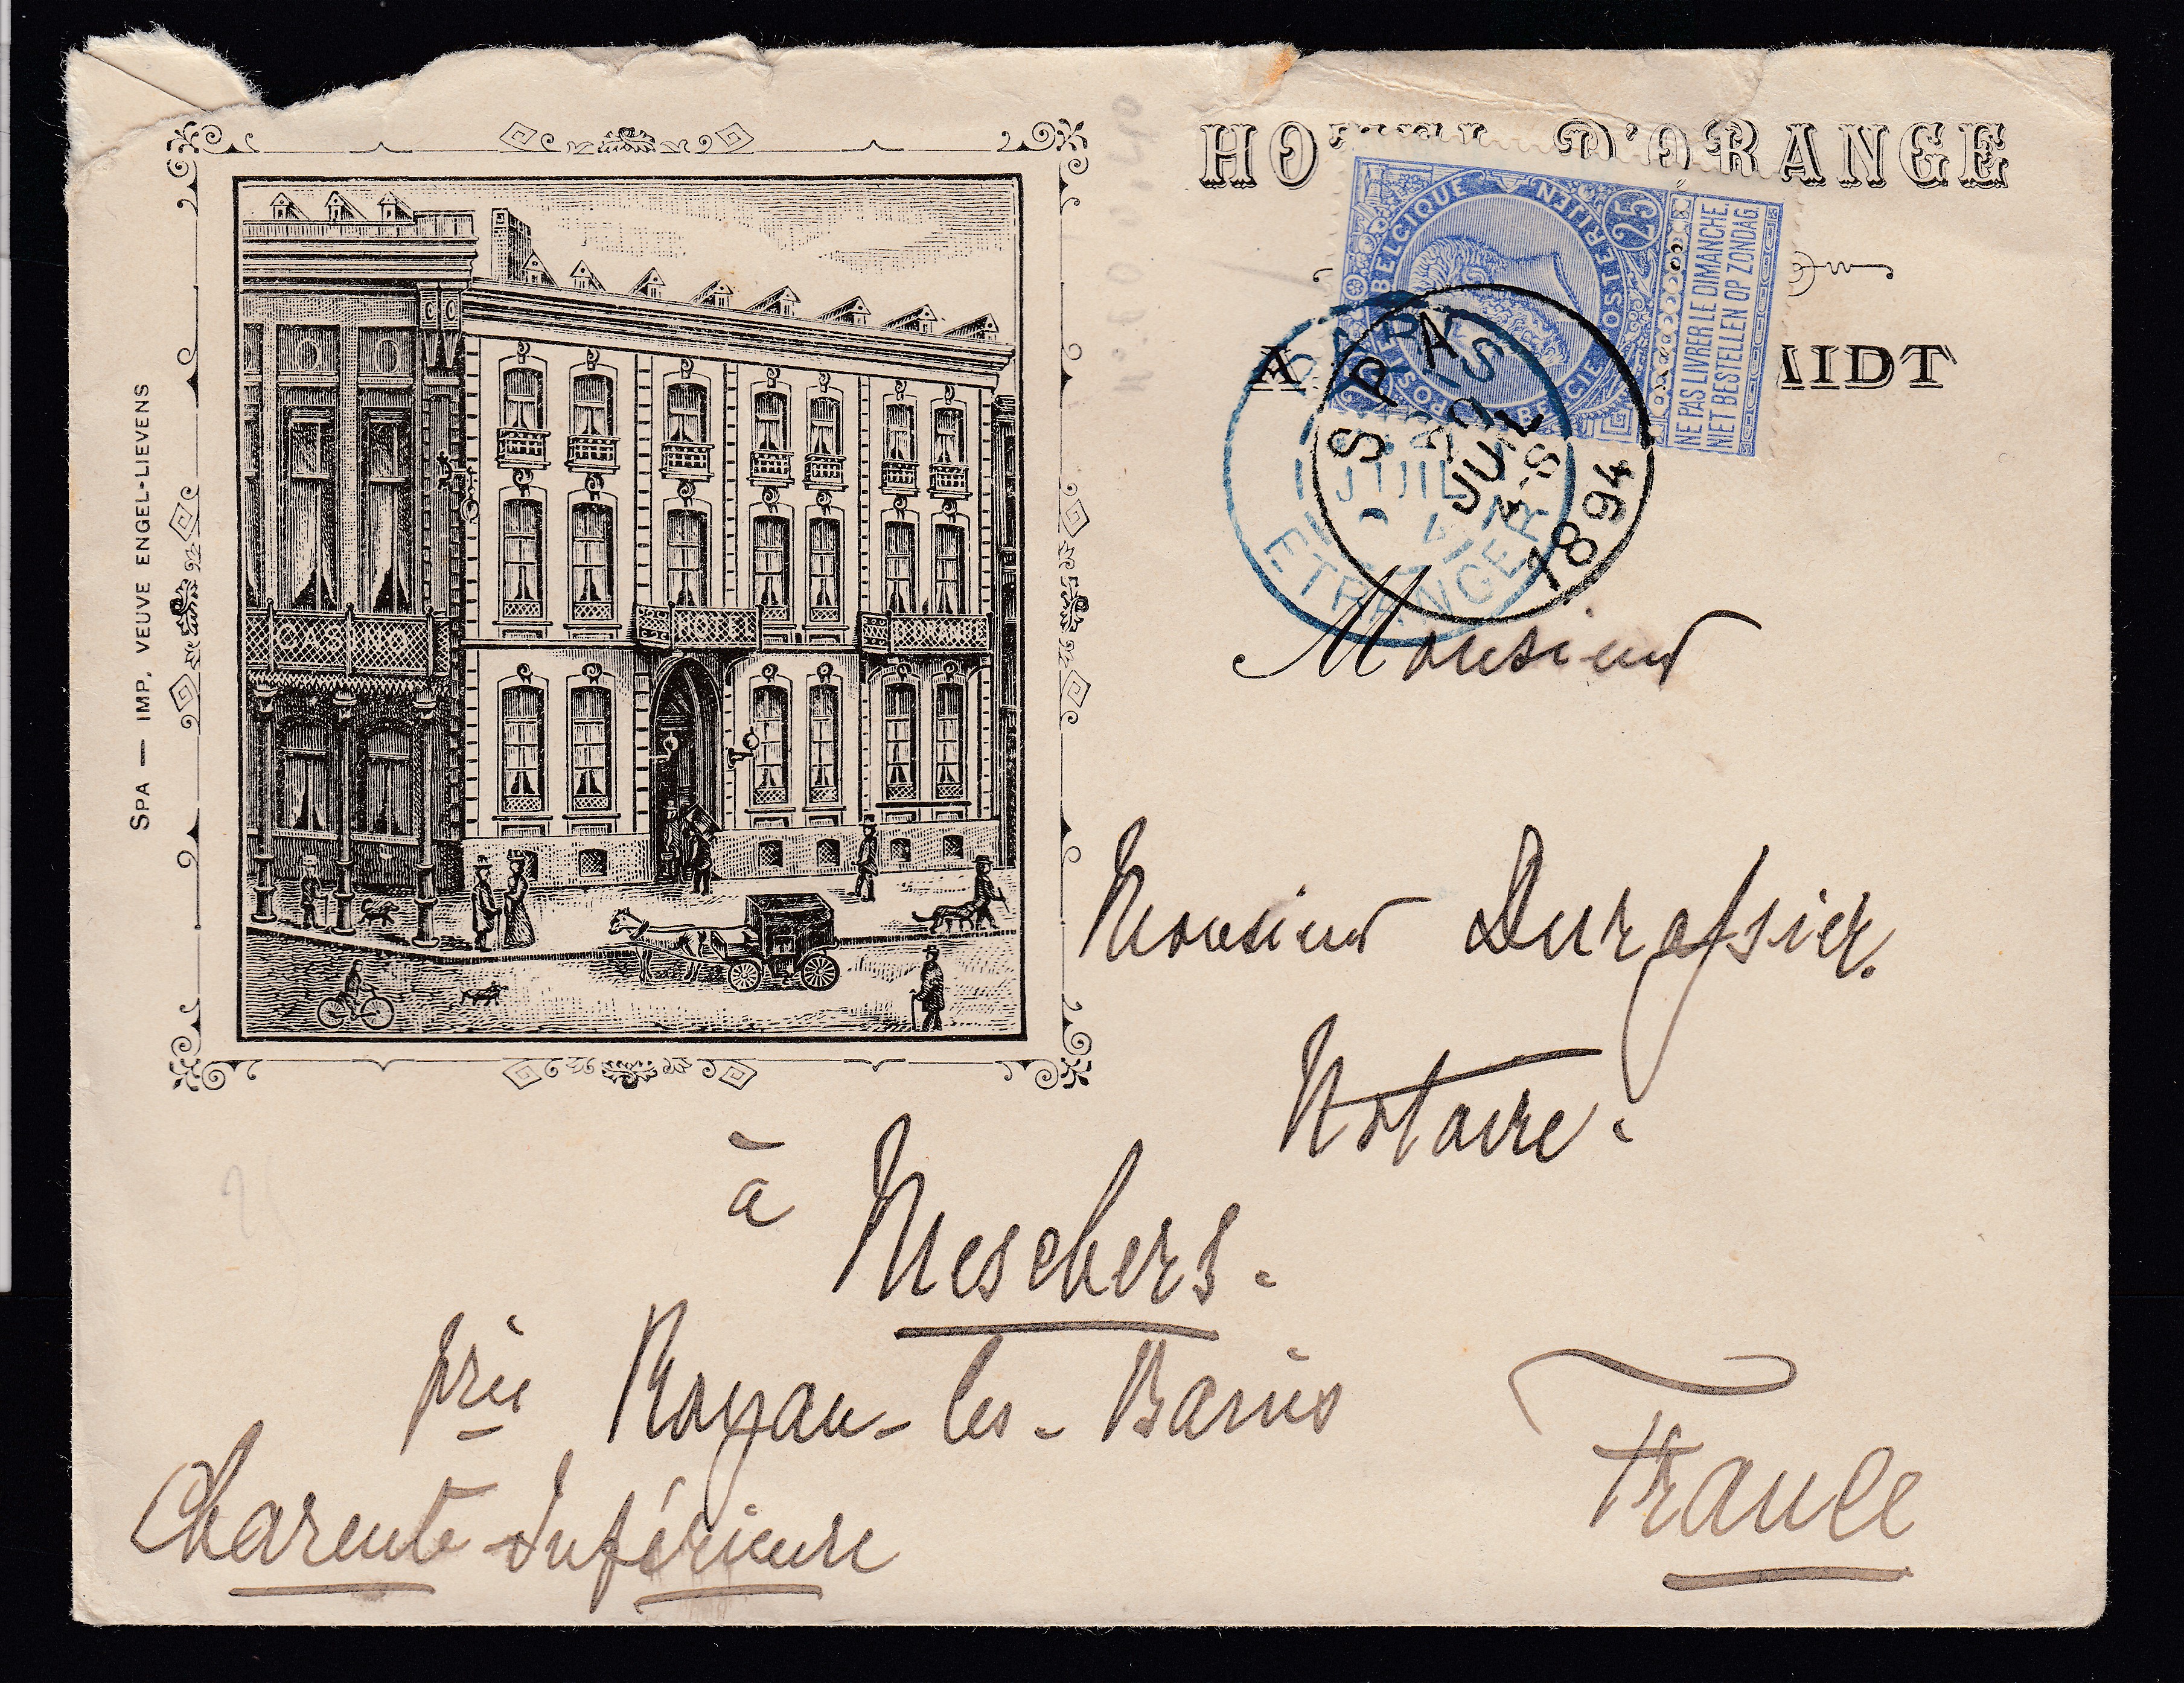 HOTEL D'ORANGE
A MIDT
BELGIQUE
POSTERIJEN
POSTES BELGIE
25
NE PAS LIVRER LE DIMANCHE
NIET BESTELLEN OP ZONDAG
SPA
20
JUIL
1894
PARIS
JUIL
ETRANGER
HOTEL
SPA — IMP. VEUVE ENGEL-LIEVENS
Monsieur
Monsieur Durassier.
Notaire.
à Meschers.
près Royan-les-Bains
Charente Inférieure
France